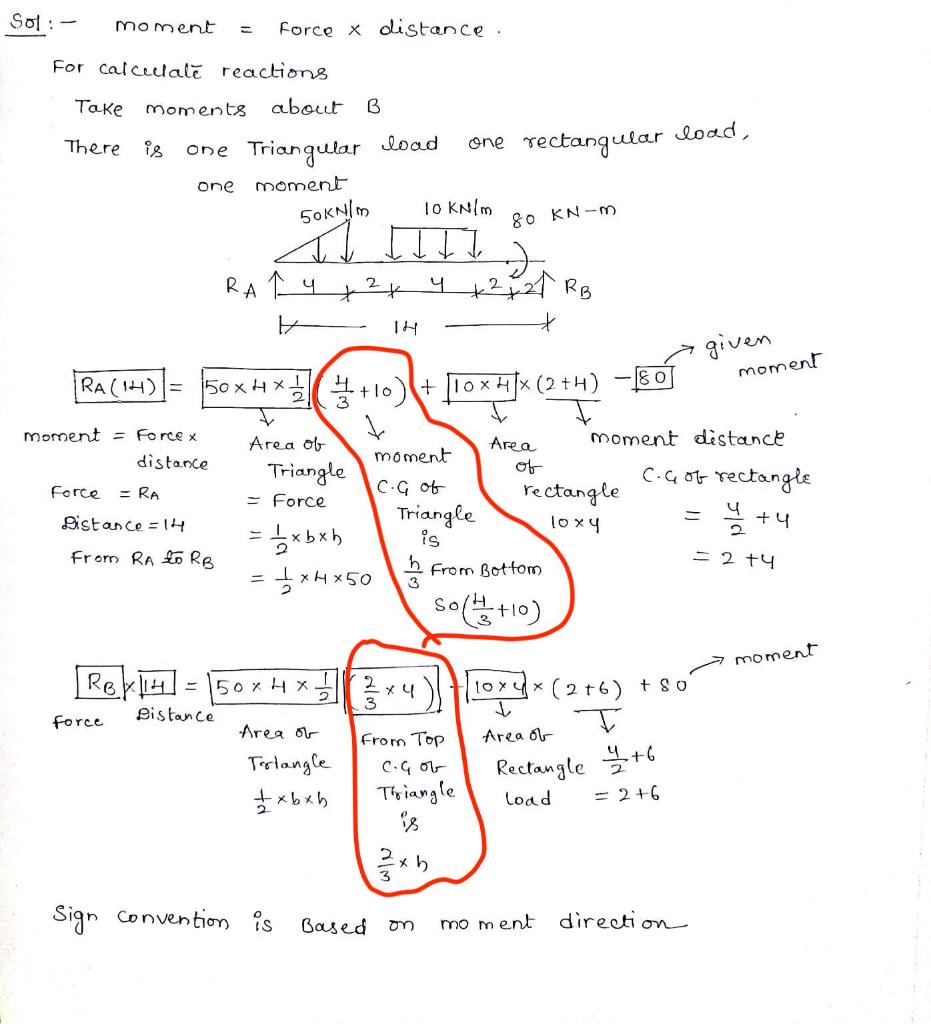 Sol :-   moment = Force x distance.
For calculate reactions
Take moments about B
There is one Triangular load one rectangular load,
one moment
50KN/m   10 KN/m   80 KN-m
RA   4   2   4   2   2   RB
14
RA(14) = 50 x 4 x 1/2 (4/3 +10) + 10 x 4 x (2+4) - 80   given moment
moment = Force x distance
Force = RA
Distance = 14
From RA to RB
Area of Triangle
= Force
= 1/2 x b x h
= 1/2 x 4 x 50
moment
C.G of Triangle is
h/3 From Bottom
so (4/3 +10)
Area of rectangle
10 x 4
moment distance
C.G of rectangle
= 4/2 + 4
= 2 + 4
RB x 14 = 50 x 4 x 1/2 (2/3 x 4) + 10 x 4 x (2+6) + 80   moment
force   Distance
Area of Triangle
1/2 x b x h
From Top
C.G of Triangle is
2/3 x h
Area of Rectangle load
4/2 + 6
= 2 + 6
Sign convention is Based on moment direction